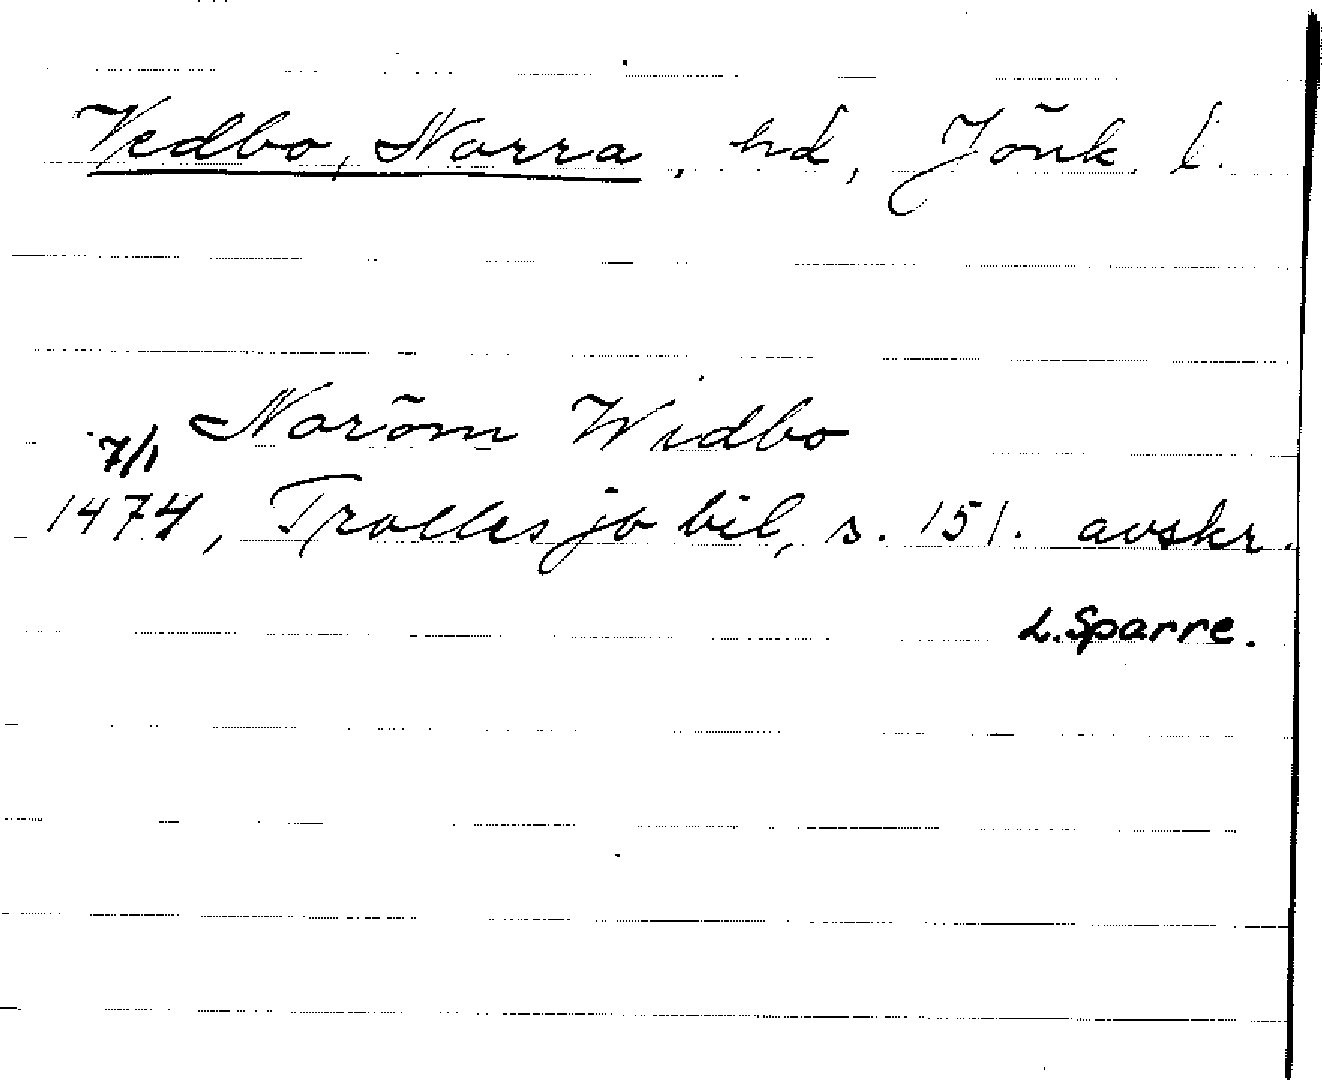 Vedbo, Norra, hd, Jönk. l.
Noröm Widbo
7/1
1474, Trollesjö bil, s. 151. avskr.
L. Sparre.